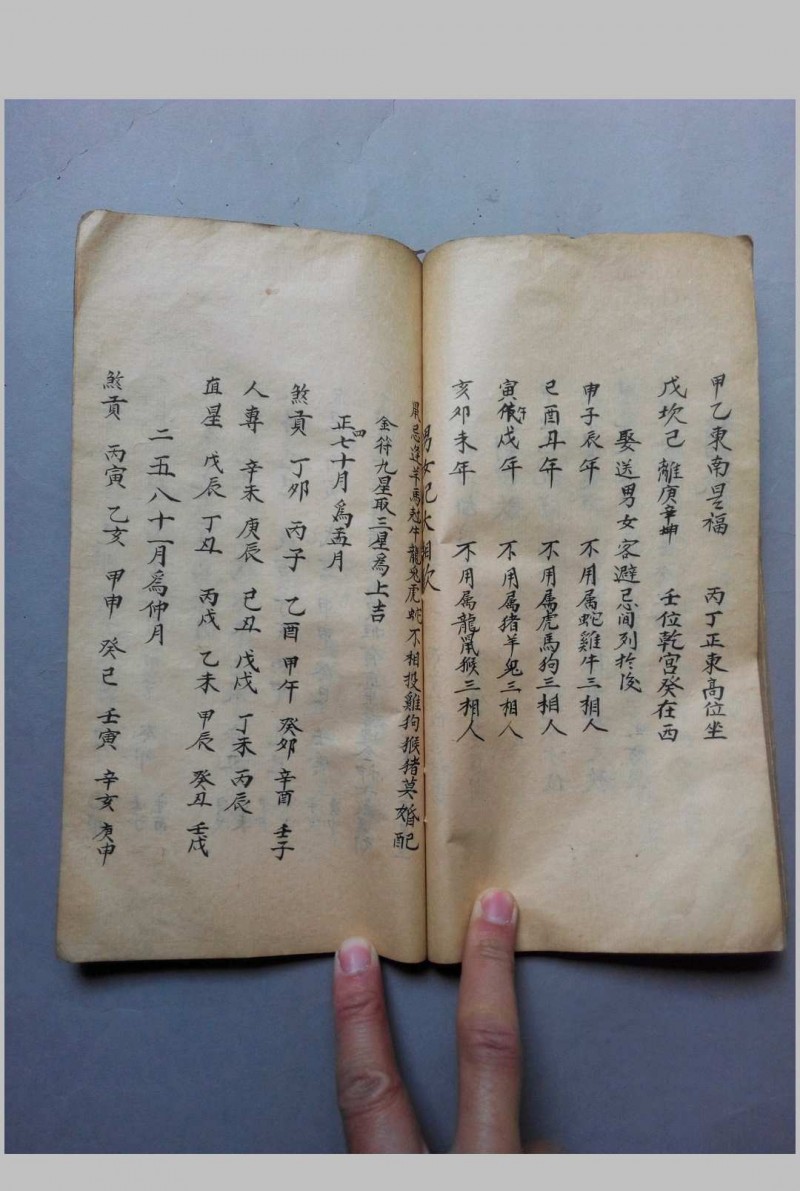 甲乙東南是福　丙丁正東高位坐
戊坎己離庚辛坤　壬位乾宮癸在西
娶送男女客避忌间列於後
申子辰年　不用属蛇雞牛三相人
巳酉丑年　不用属虎馬狗三相人
寅午戌年　不用属猪羊兔三相人
亥卯未年　不用属龍鼠猴三相人
男女犯大相次
鼠忌逢羊馬尅牛龍兔虎蛇不相投雞狗猴猪莫婚配
金符九星取三星為上吉
正四七十月為孟月
煞貢　丁卯　丙子　乙酉　甲午　癸卯　辛酉　壬子
人專　辛未　庚辰　己丑　戊戌　丁未　丙辰
直星　戊辰　丁丑　丙戌　乙未　甲辰　癸丑　壬戌
二五八十一月為仲月
煞貢　丙寅　乙亥　甲申　癸巳　壬寅　辛亥　庚申